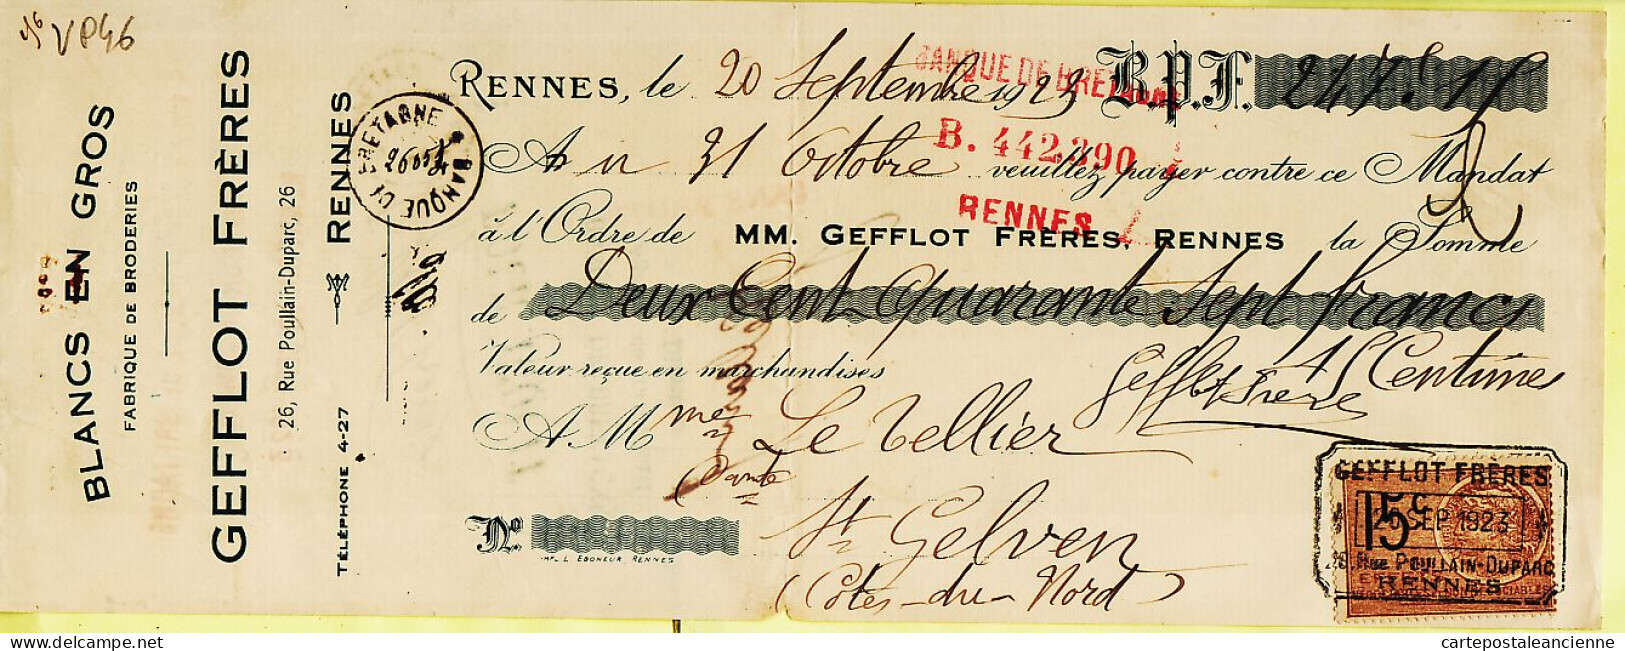 VP46
BLANCS EN GROS
FABRIQUE DE BRODERIES
GEFFLOT FRÈRES
26, Rue Poullain-Duparc, 26
TÉLÉPHONE 4-27
RENNES
BANQUE DE BRETAGNE
RENNES, le 20 Septembre 1923 B.P.F. 247f 15
BANQUE DE BRETAGNE
B. 442.390
RENNES
Au 31 Octobre veuillez payer contre ce Mandat
à l'Ordre de MM. GEFFLOT FRÈRES, RENNES la Somme
de Deux Cent quarante Sept francs
15 Centimes
Valeur reçue en marchandises
Gefflot Frères
A Mme Le Tellier
St Gelven
(Côtes-du-Nord)
No
IMP. L. EDONEUR RENNES
GEFFLOT FRÈRES
15c
SEP 1923
26, Rue POULLAIN-DUPARC
RENNES
cartepostaleancienne